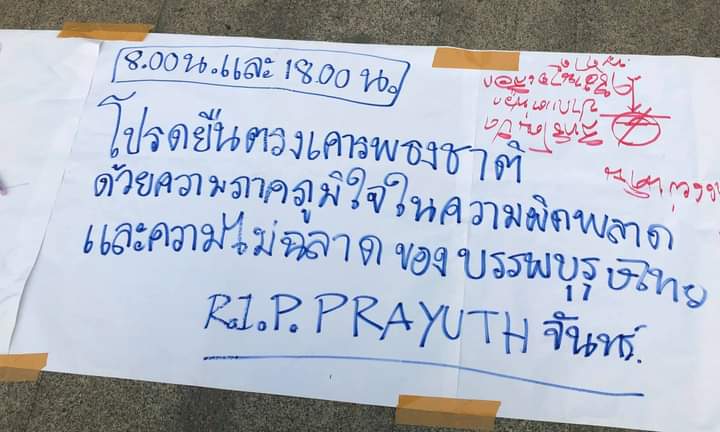 8.00 น. และ 18.00 น.
โปรดยืนตรงเคารพธงชาติ
ด้วยความภาคภูมิใจในความผิดพลาด
และความไม่ฉลาด ของ บรรพบุรุษไทย
R.I.P. PRAYUTH จันทร์.